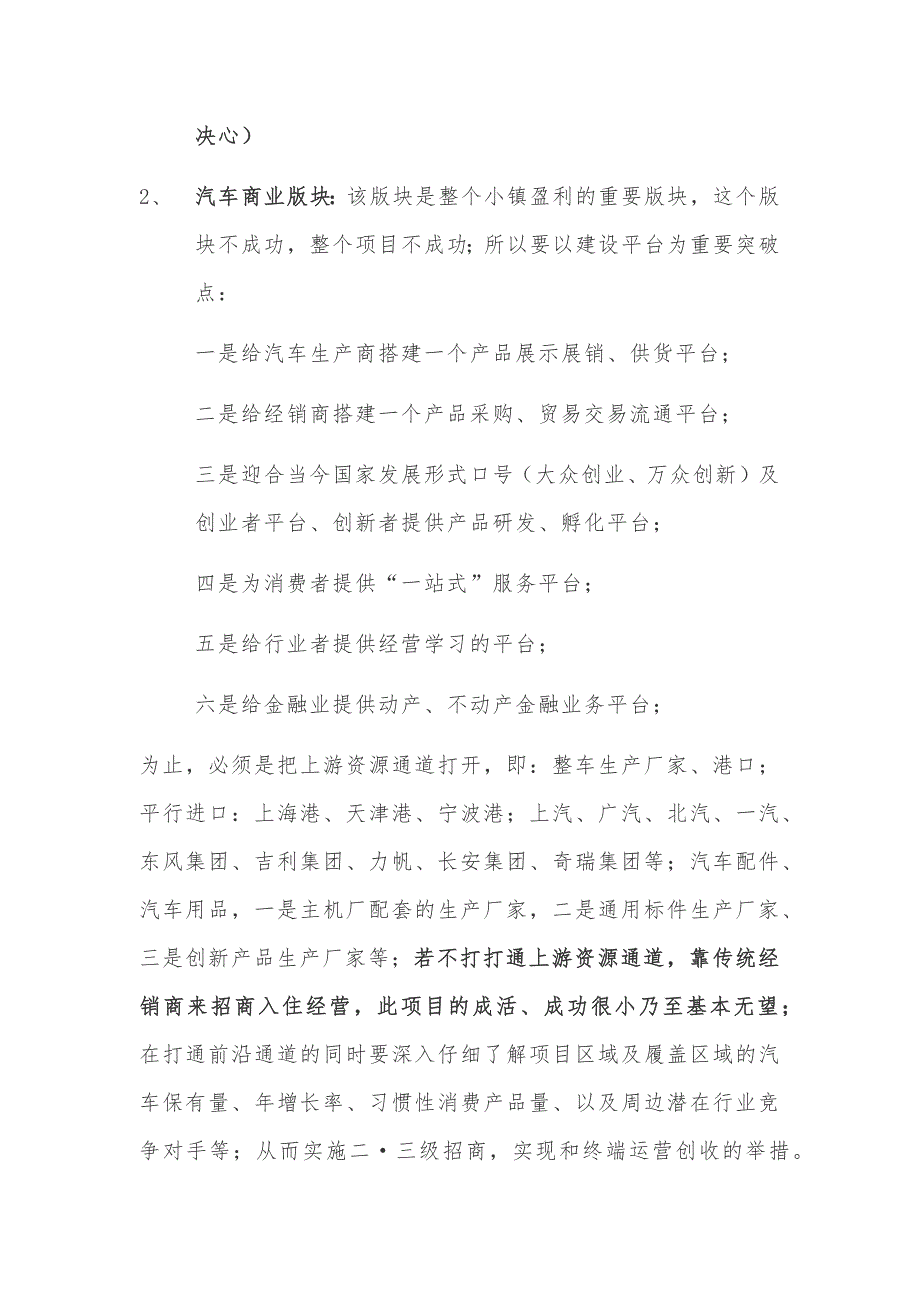 决心）
2、 汽车商业版块：该版块是整个小镇盈利的重要版块，这个版
块不成功，整个项目不成功；所以要以建设平台为重要突破
点：
一是给汽车生产商搭建一个产品展示展销、供货平台；
二是给经销商搭建一个产品采购、贸易交易流通平台；
三是迎合当今国家发展形式口号（大众创业、万众创新）及
创业者平台、创新者提供产品研发、孵化平台；
四是为消费者提供“一站式”服务平台；
五是给行业者提供经营学习的平台；
六是给金融业提供动产、不动产金融业务平台；
为止，必须是把上游资源通道打开，即：整车生产厂家、港口；
平行进口：上海港、天津港、宁波港；上汽、广汽、北汽、一汽、
东风集团、吉利集团、力帆、长安集团、奇瑞集团等；汽车配件、
汽车用品，一是主机厂配套的生产厂家，二是通用标件生产厂家、
三是创新产品生产厂家等；若不打打通上游资源通道，靠传统经
销商来招商入住经营，此项目的成活、成功很小乃至基本无望；
在打通前沿通道的同时要深入仔细了解项目区域及履盖区域的汽
车保有量、年增长率、习惯性消费产品量、以及周边潜在行业竞
争对手等；从而实施二·三级招商，实现和终端运营创收的举措。